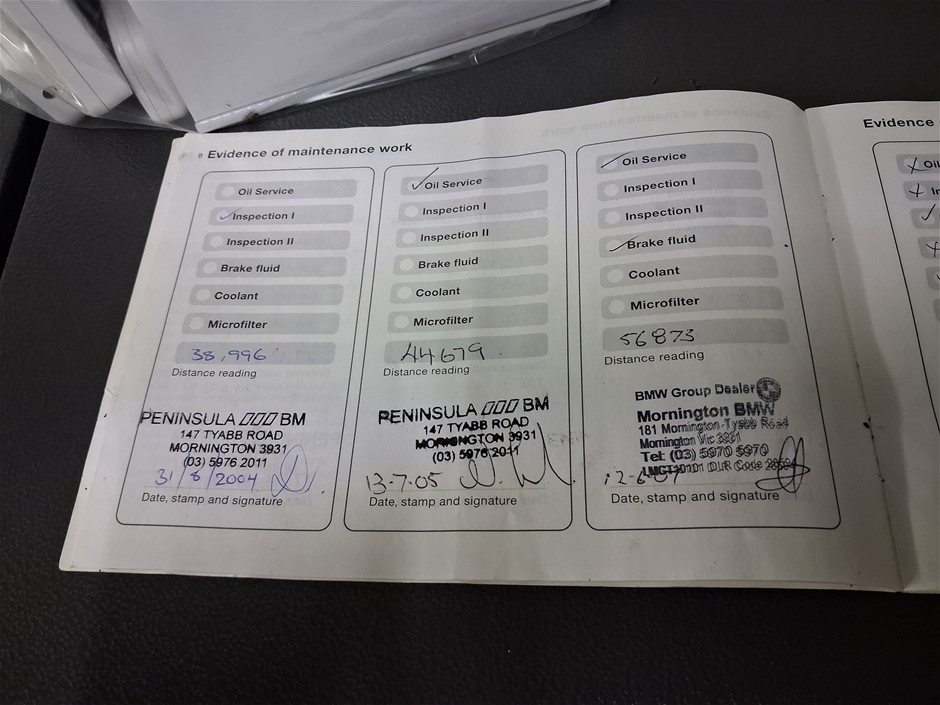 8 Evidence of maintenance work
Oil Service
Inspection I
Inspection II
Brake fluid
Coolant
Microfilter
38,996
Distance reading
PENINSULA BM
147 TYABB ROAD
MORNINGTON 3931
(03) 5976 2011
31/8/2004
Date, stamp and signature
Oil Service
Inspection I
Inspection II
Brake fluid
Coolant
Microfilter
44679
Distance reading
PENINSULA BM
147 TYABB ROAD
MORNINGTON 3931
(03) 5976 2011
13-7-05
Date, stamp and signature
Oil Service
Inspection I
Inspection II
Brake fluid
Coolant
Microfilter
56873
Distance reading
BMW Group Dealer
Mornington BMW
181 Mornington-Tyabb Road
Mornington Vic 3931
Tel: (03) 5970 5970
LMCT10101 DLR Code
Date, stamp and signature
Evidence
Oil